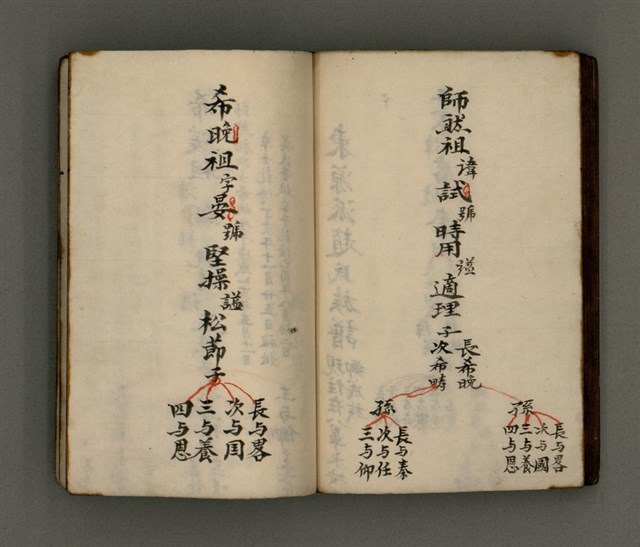 師㪽祖諱試號時用謚適理子長希晚
次希疇
孫長与畧
次与國
三与養
四与恩
孫長与秦
次与任
三与仰
希晚祖字晏號堅操謚松節子
長与畧
次与国
三与養
四与恩